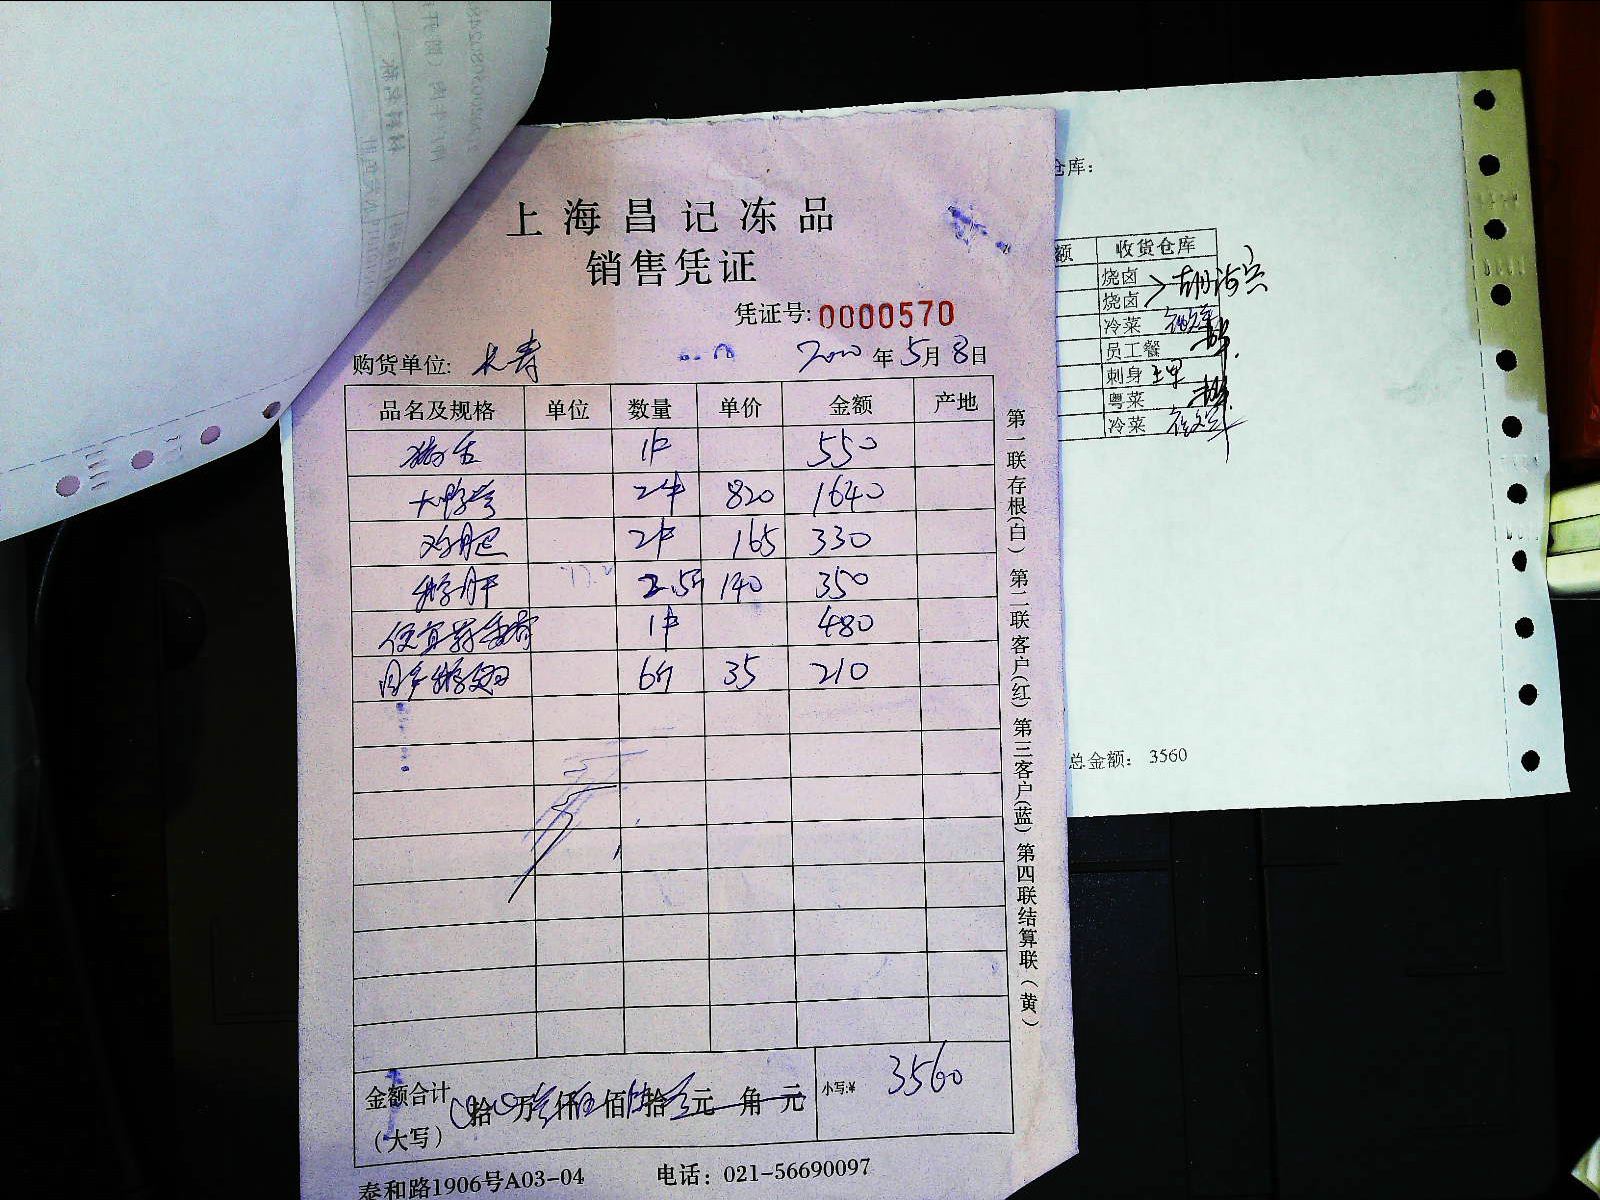 上海昌记冻品
销售凭证
凭证号: 0000570
购货单位: 长寿 2020年5月8日
品名及规格 单位 数量 单价 金额 产地
猪舌 1件 550
大鸭掌 2件 820 1640
鸡肫 2件 165 330
鹅肝 2.5斤 140 350
便宜 1件 480
国产鹅翅 6斤 35 210
金额合计
(大写)
拾 万 仟 佰 拾 元 角 元
小写:¥ 3560
泰和路1906号A03-04 电话: 021-56690097
第一联存根(白) 第二联客户(红) 第三客户(蓝) 第四联结算联(黄)
仓库:
额 收货仓库
烧卤
烧卤
冷菜
员工餐
刺身
粤菜
冷菜
总金额: 3560